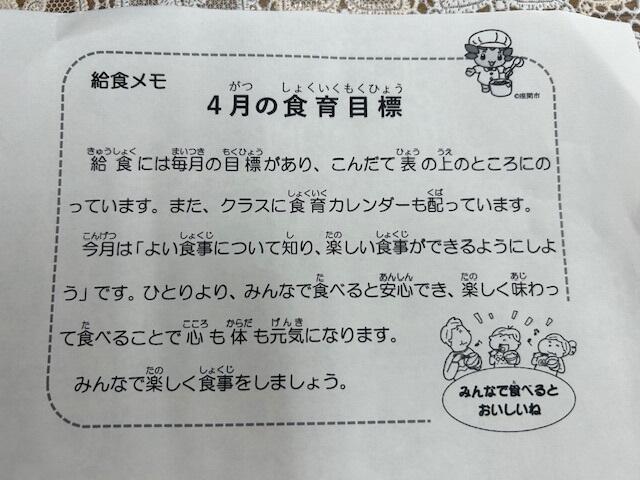 給食メモ
がつ しょくいくもくひょう
4月の食育目標
©座間市
きゅうしょく まいつき もくひょう ひょう うえ
給食には毎月の目標があり、こんだて表の上のところにの
しょくいく くば
っています。また、クラスに食育カレンダーも配っています。
こんげつ しょくじ し たの しょくじ
今月は「よい食事について知り、楽しい食事ができるようにしよ
た あんしん たの あじ
う」です。ひとりより、みんなで食べると安心でき、楽しく味わっ
た こころ からだ げんき
て食べることで心も体も元気になります。
たの しょくじ
みんなで楽しく食事をしましょう。
みんなで食べると
おいしいね